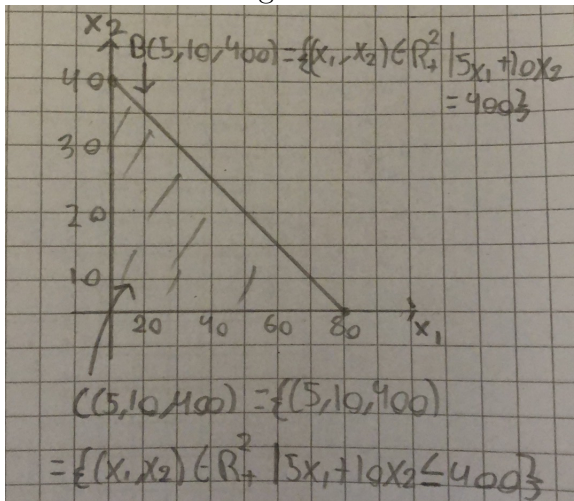 x2
B(5,10,400) = {(x₁,x₂) ∈ R²₊ | 5x₁+10x₂
= 400}
40
30
20
10
20 40 60 80 x₁
C(5,10,400) = {(5,10,400)
= {(x₁,x₂) ∈ R²₊ | 5x₁+10x₂ ≤ 400}